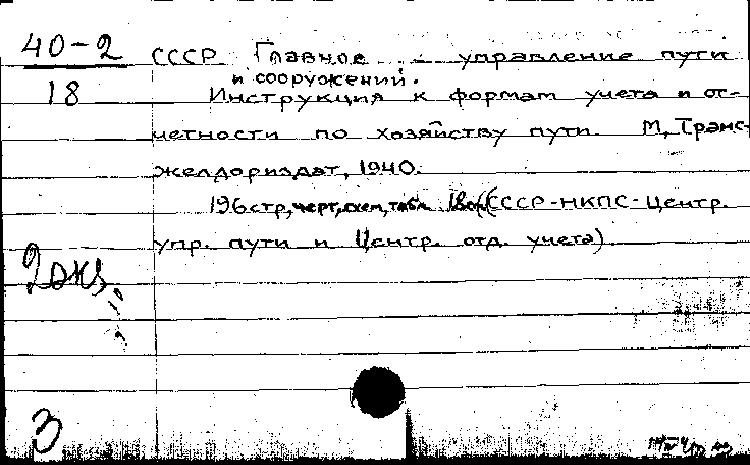 40-2
18
СССР Главное управление пути
и сооружений.
Инструкция к формам учета и от-
четности по хозяйству пути. М, Транс-
желдориздат, 1940.
196 стр, черт, схем, табл. (СССР-НКПС-Центр.
упр. пути и Центр. отд. учета)
2 экз.
3